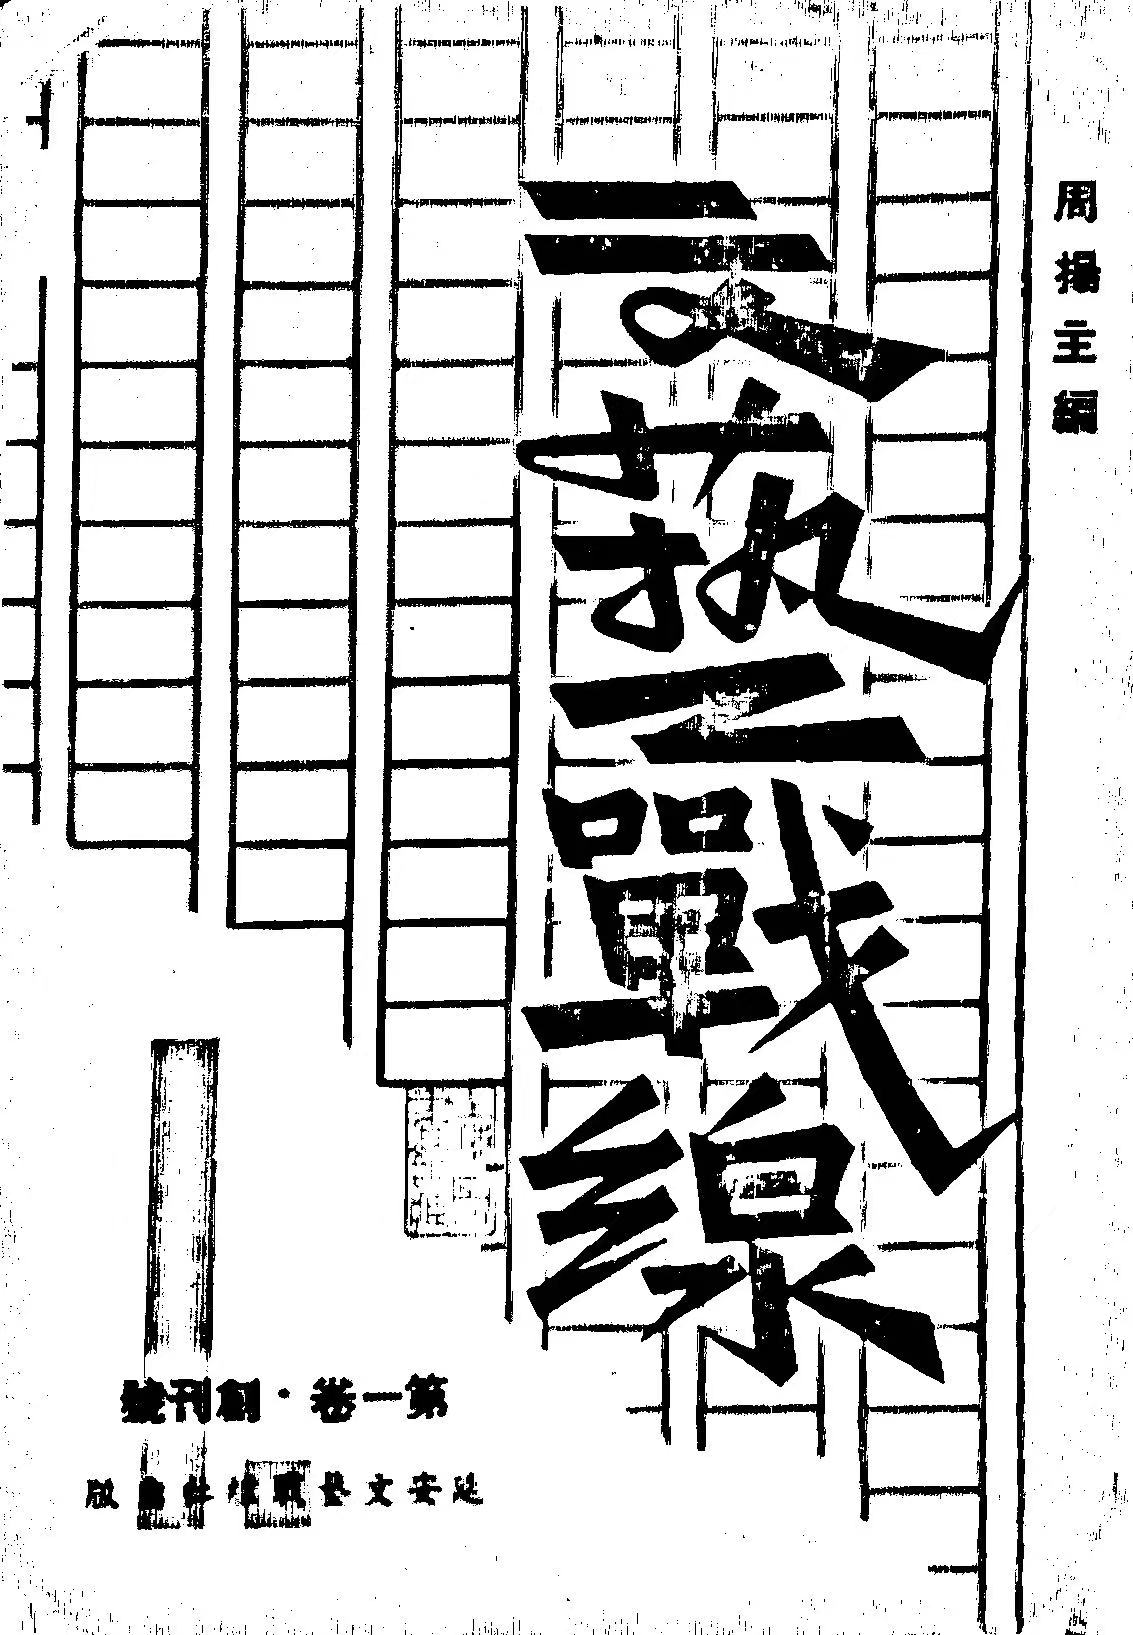 周揚主編
文藝戰線
第一卷·創刊號
延安文藝戰線社出版